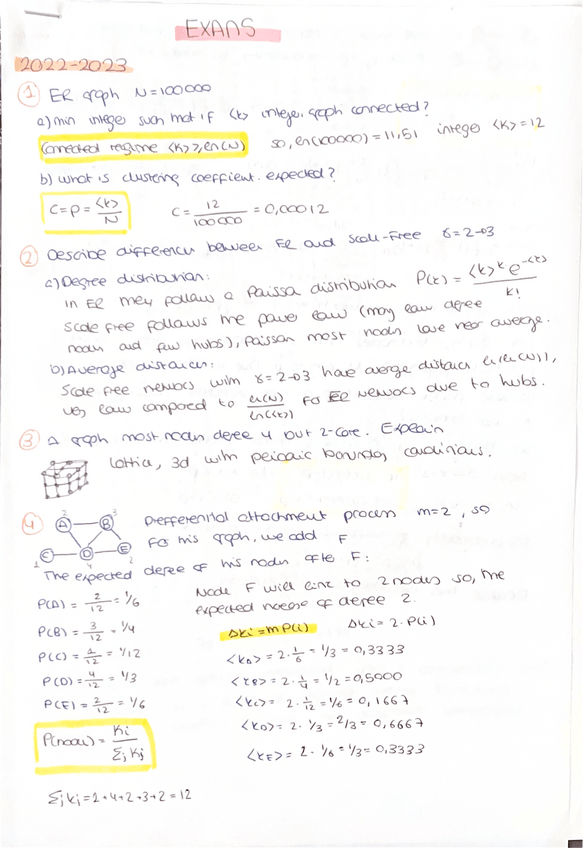 EXAMS
2022-2023
1 ER graph N=100000
a) min integer such that if <k> integer, graph connected?
Connected regime <k> ≥ ln(N) so, ln(100000) = 11,51 integer <k> = 12
b) what is clustering coefficient expected?
C = p = <k>/N C = 12/100000 = 0,00012
2 Describe differences between ER and scale-free γ = 2-03
a) Degree distribution:
in ER they follow a Poisson distribution P(k) = <k>^k e^-<k> / k!
Scale free follows the power law (many low degree
nodes and few hubs), Poisson most nodes have near average.
b) Average distances:
Scale free networks with γ = 2-03 have average distance ln(ln(N)),
very low compared to ln(N)/ln(<k>) for ER networks due to hubs.
3 A graph most nodes degree 4 but 2-core. Explain
Lattice, 3d with periodic boundary conditions.
4 A B C D E
2 3 1 4 2
Prefferential attachment process m=2, so
for this graph, we add F
The expected degree of this nodes after F:
Node F will link to 2 nodes so, the
expected degree 2.
P(A) = 2/12 = 1/6
P(B) = 3/12 = 1/4
P(C) = 1/12 = 1/12
P(D) = 4/12 = 1/3
P(E) = 2/12 = 1/6
P(node) = Ki / Σj Kj
Σj kj = 2+4+2+3+2 = 12
Δki = m P(i) Δki = 2·P(i)
<kA> = 2·1/6 = 1/3 = 0,3333
<kB> = 2·1/4 = 1/2 = 0,5000
<kC> = 2·1/12 = 1/6 = 0,1667
<kD> = 2·1/3 = 2/3 = 0,6667
<kE> = 2·1/6 = 1/3 = 0,3333